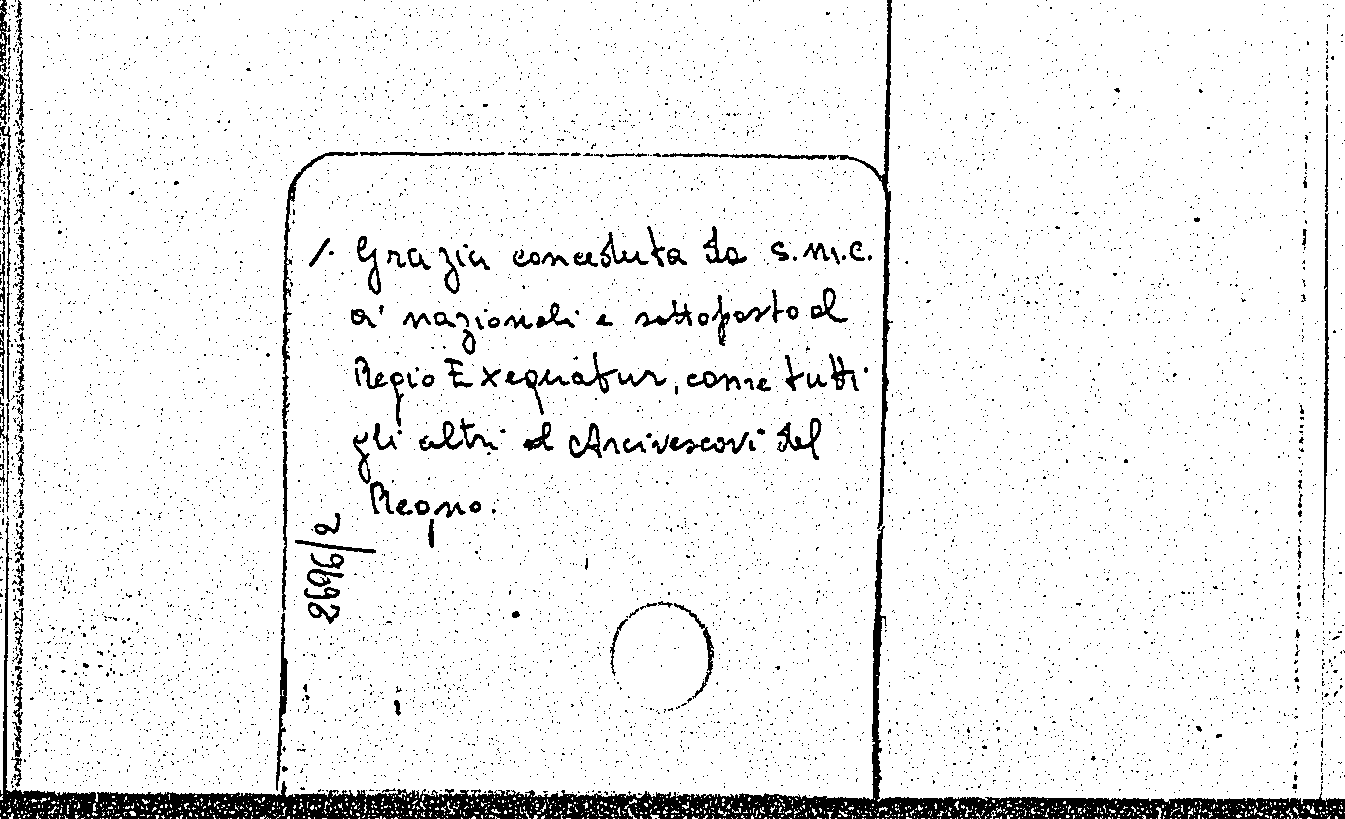 /. Grazia conceduta da S.M.C.
a' nazionali e sottoposto al
Regio Exequatur, come tutti
gli altri ed Arcivescovi del
Regno.
2696/2